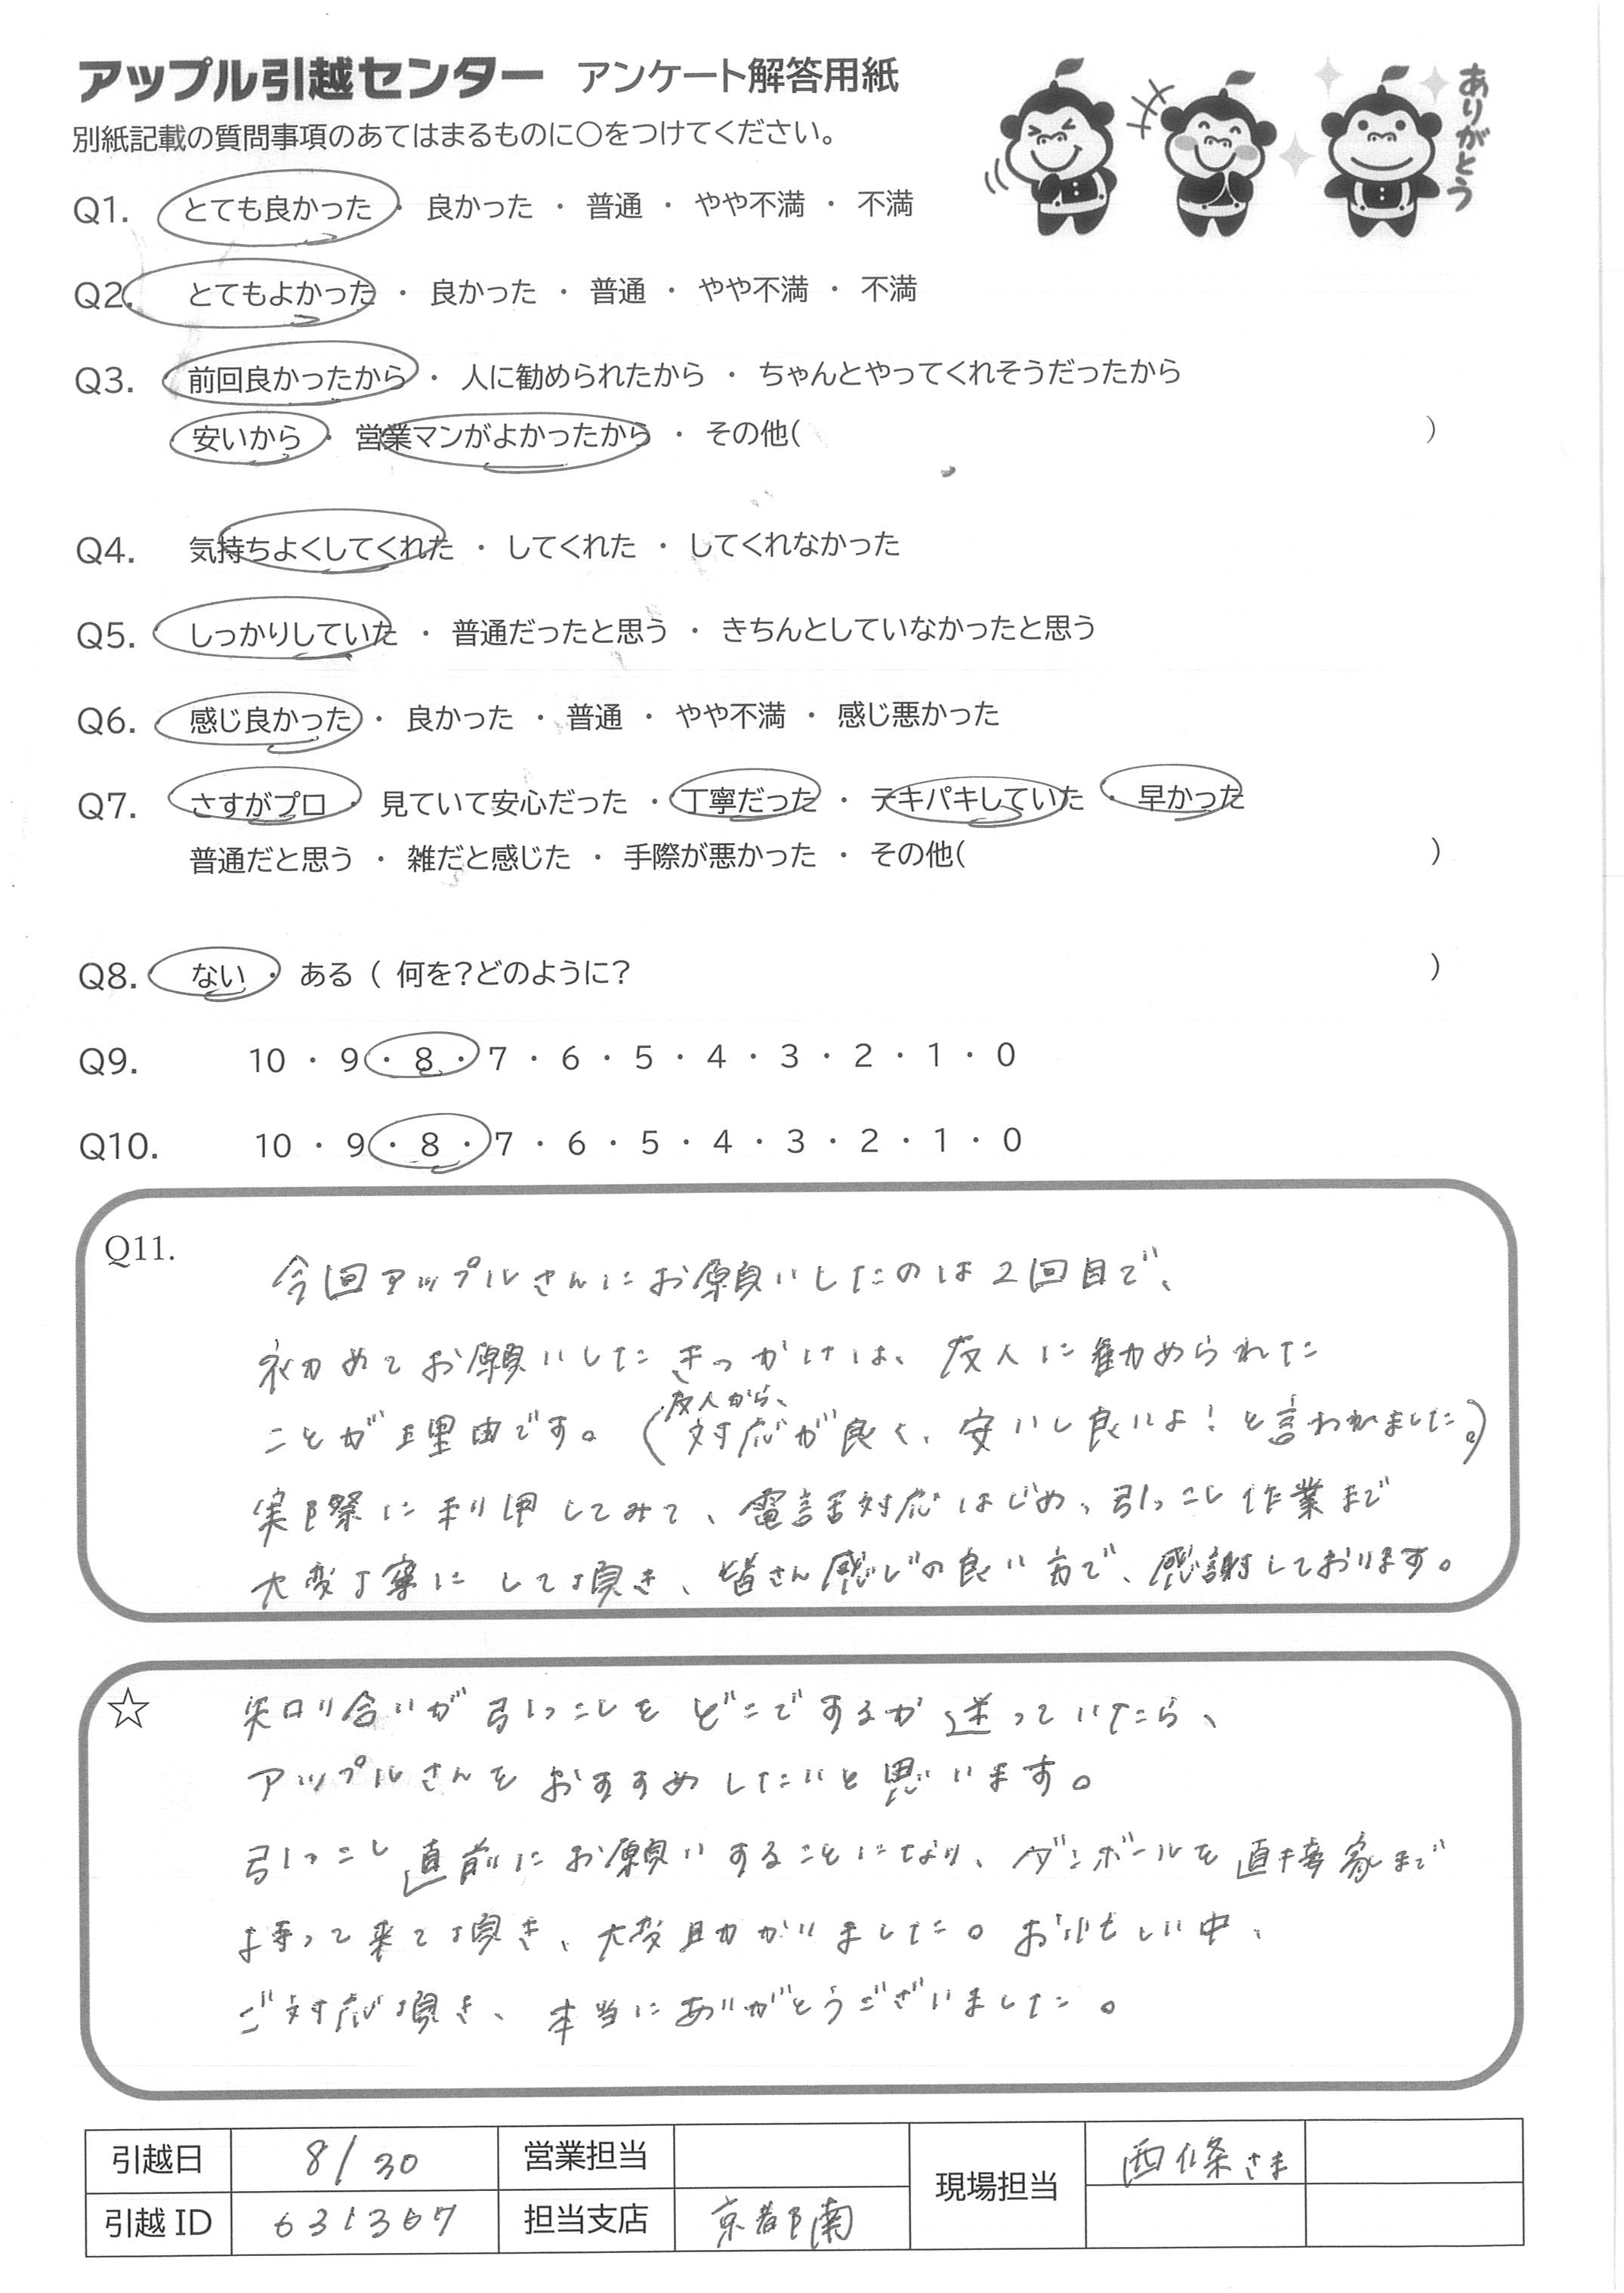 アップル引越センター アンケート解答用紙
ありがとう
別紙記載の質問事項のあてはまるものに○をつけてください。
Q1. とても良かった ・ 良かった ・ 普通 ・ やや不満 ・ 不満
Q2. とてもよかった ・ 良かった ・ 普通 ・ やや不満 ・ 不満
Q3. 前回良かったから ・ 人に勧められたから ・ ちゃんとやってくれそうだったから
安いから ・ 営業マンがよかったから ・ その他( )
Q4. 気持ちよくしてくれた ・ してくれた ・ してくれなかった
Q5. しっかりしていた ・ 普通だったと思う ・ きちんとしていなかったと思う
Q6. 感じ良かった ・ 良かった ・ 普通 ・ やや不満 ・ 感じ悪かった
Q7. さすがプロ ・ 見ていて安心だった ・ 丁寧だった ・ テキパキしていた ・ 早かった
普通だと思う ・ 雑だと感じた ・ 手際が悪かった ・ その他( )
Q8. ない ・ ある ( 何を?どのように? )
Q9. 10 ・ 9 ・ 8 ・ 7 ・ 6 ・ 5 ・ 4 ・ 3 ・ 2 ・ 1 ・ 0
Q10. 10 ・ 9 ・ 8 ・ 7 ・ 6 ・ 5 ・ 4 ・ 3 ・ 2 ・ 1 ・ 0
Q11.
今回アップルさんにお願いしたのは2回目で、
初めてお願いしたきっかけは、友人に勧められた
友人から、
ことが理由です。(対応が良く、安いし良いよ!と言われました。)
実際に利用してみて、電話対応はじめ、引っこし作業まで
大変丁寧にして頂き、皆さん感じの良い方で、感謝しております。
☆ 知り合いが引っこしをどこでするか迷っていたら、
アップルさんをおすすめしたいと思います。
引っこし直前にお願いすることになり、ダンボールを直接家まで
持って来て頂き、大変助かりました。お忙しい中、
ご対応頂き、本当にありがとうございました。
引越日 8/30 営業担当 現場担当 西條さま
引越ID 631367 担当支店 京都南